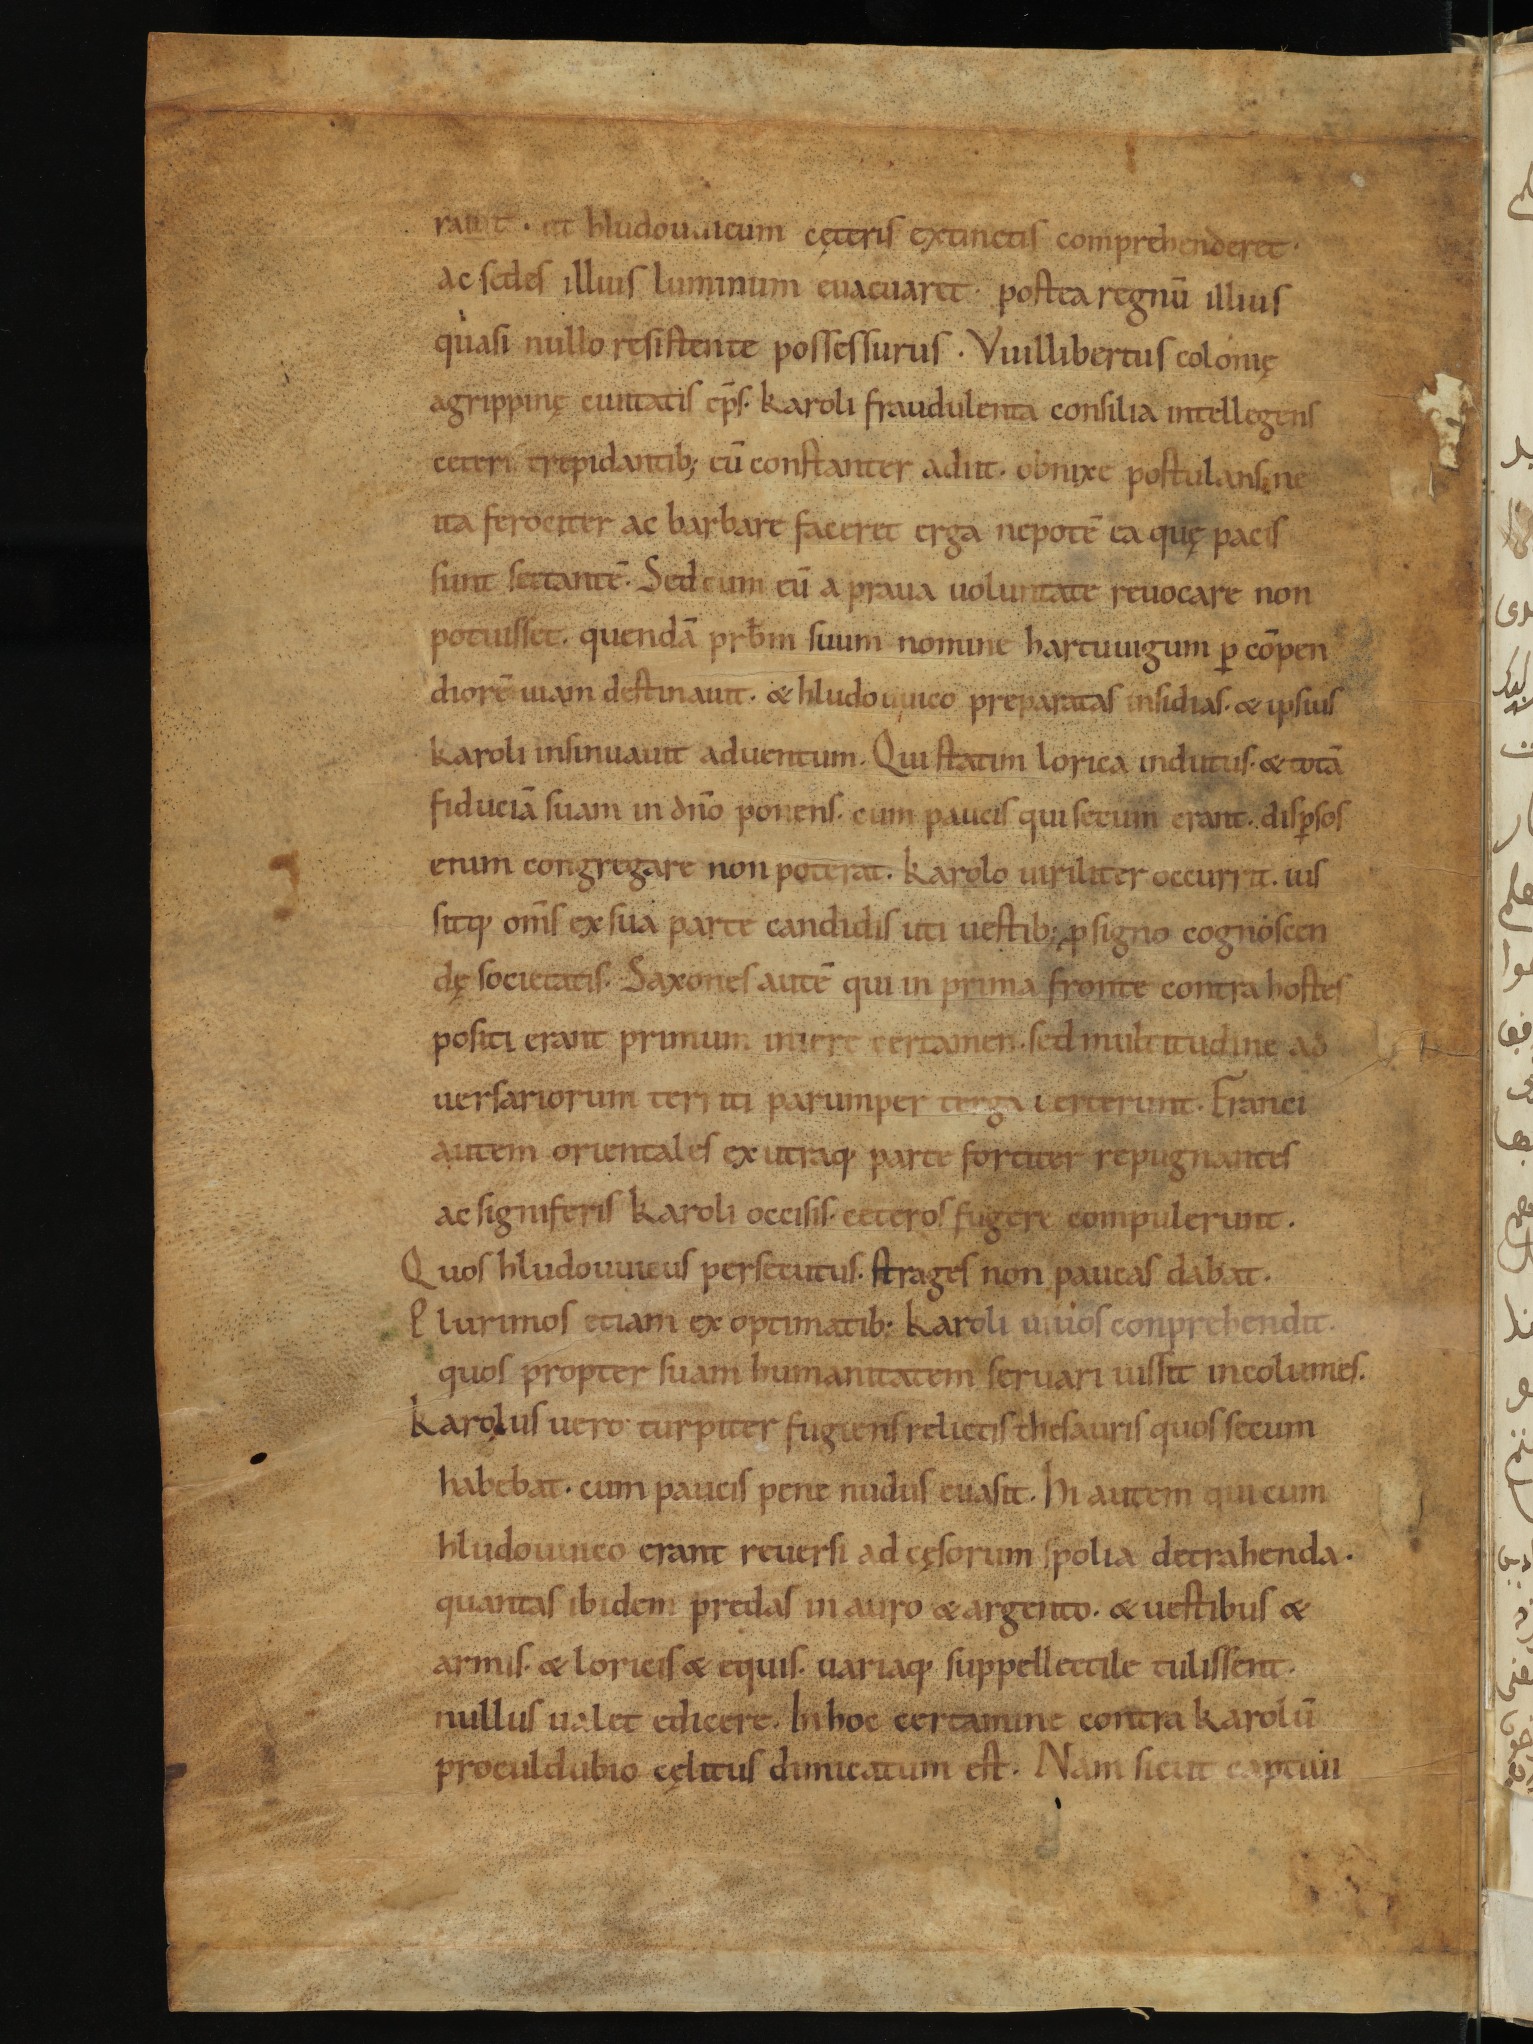 rauit · ut hludouuicum cęteris extinctis comprehenderet ·
ac sedes illius luminum euacuaret · postea regnū illius
quasi nullo resistente possessurus · Vuillibertus colonię
agrippinę ciuitatis ep̄s · karoli fraudulenta consilia intellegens
ceteris trepidantib; eū constanter adiit · obnixe postulans ne
ita ferociter ac barbare faceret erga nepotē ea quę pacis
sunt sectantē · Sed cum eū a praua uoluntate reuocare non
potuisset · quendā prb̄m suum nomine hartuuigum ꝑ cōpen
diorē uiam destinauit · & hludouuico preparatas insidias · & ipsius
karoli insinuauit aduentum · Qui statim lorica indutus · & totā
fiduciā suam in dn̄o ponens · cum paucis qui secum erant · disꝑsos
enim congregare non poterat · karolo uiriliter occurrit · ius
sitq; om̄s ex sua parte candidis uti uestib; ꝓ signo cognoscen
dę societatis · Saxones autē qui in prima fronte contra hostes
positi erant primum iniere certamen · sed multitudine ad
uersariorum territi parumper terga uerterunt · Franci
autem orientales ex utraq; parte fortiter repugnantes
ac signiferis karoli occisis · ceteros fugere compulerunt ·
Quos hludouuicus persecutus · strages non paucas dabat ·
Plurimos etiam ex optimatib; karoli uiuos conprehendit ·
quos propter suam humanitatem seruari iussit incolumes ·
karolus uero turpiter fugiens relictis thesauris quos secum
habebat · cum paucis pene nudus euasit · Hi autem qui cum
hludouuico erant reuersi ad cęsorum spolia detrahenda ·
quantas ibidem predas in auro & argento · & uestibus &
armis · & loricis & equis · uariaq; suppellectile tulissent ·
nullus ualet edicere · In hoc certamine contra karolū
proculdubio cęlitus dimicatum est · Nam sicut captiui